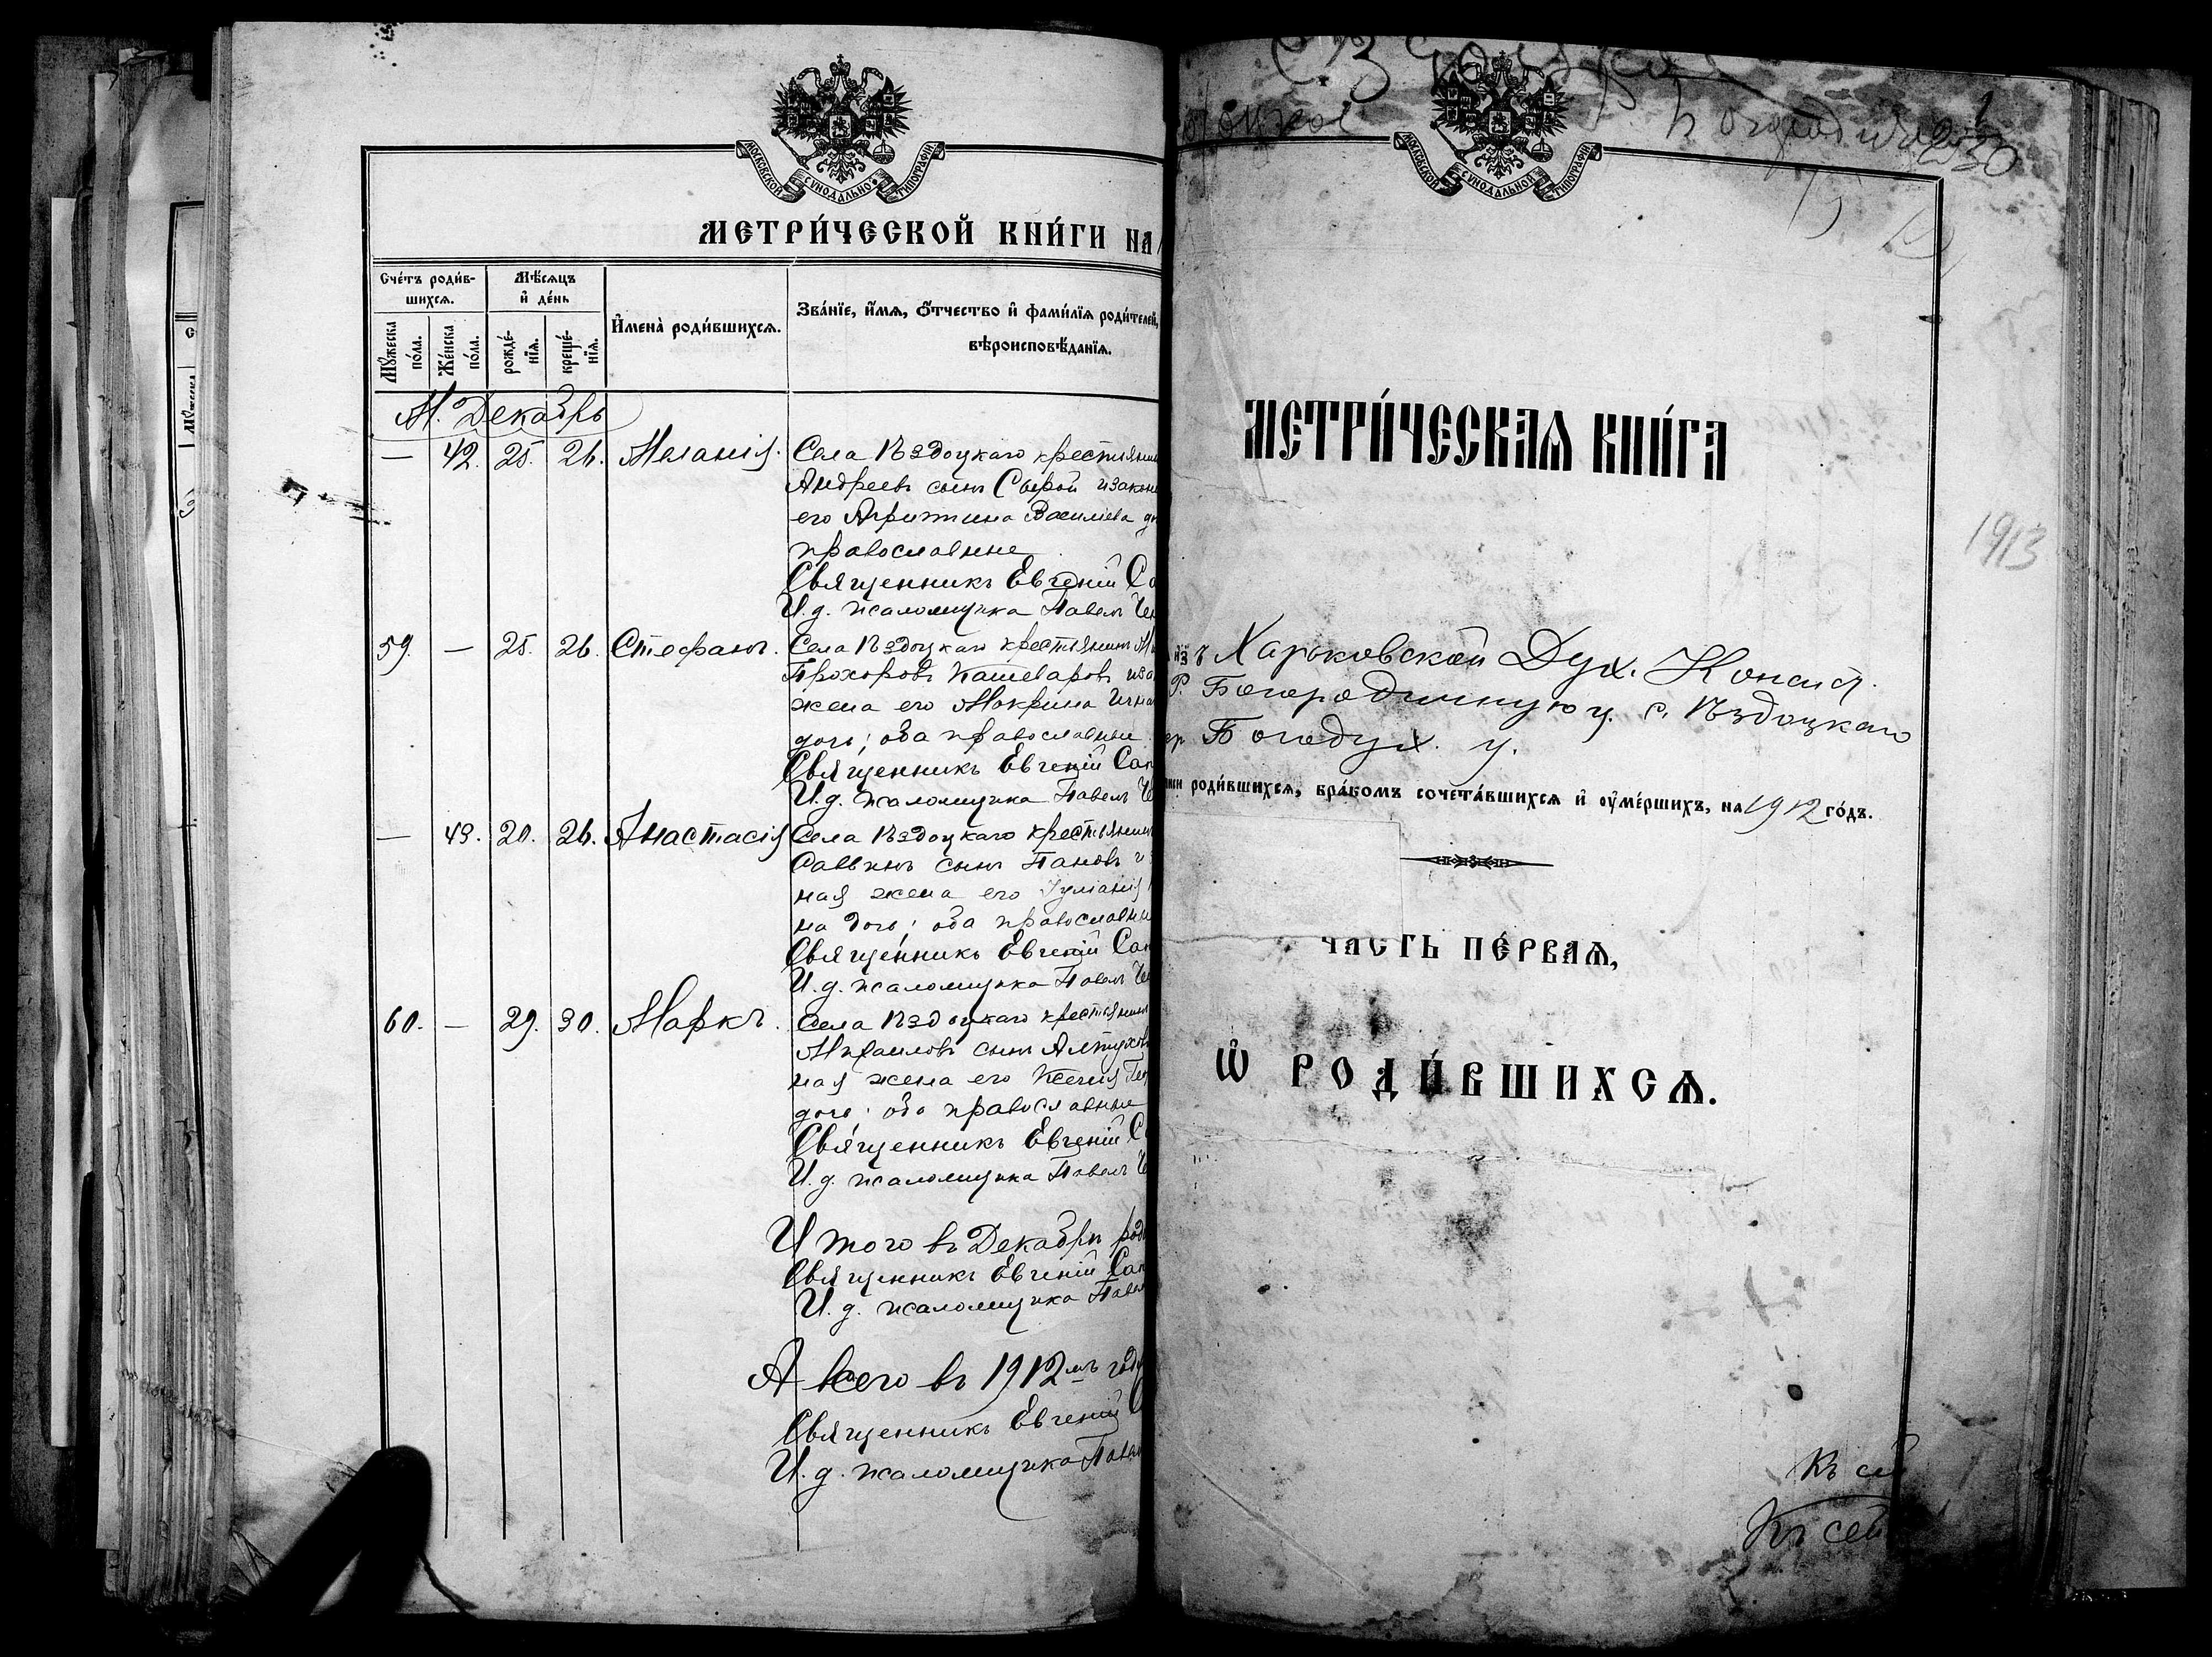 МОСКОВСКОЙ СѴНОДАЛЬНОЙ ТИПОГРАФІИ
МЕТРИ́ЧЕСКОЙ КНИ́ГИ НА
Сче́тъ роди́в-
шихсѧ.
Мѣ́сѧцъ
и҆ де́нь
И҆мена̀ роди́вшихсѧ.
Зва́нїе, и҆́мѧ, ѻ҆́тчество и҆ фами́лїѧ роди́телей,
вѣроисповѣ́данїѧ.
Мꙋ́жеска
по́ла.
Же́нска
по́ла.
рожде́-
нїѧ.
креще́-
нїѧ.
М. Декабрь
— 42. 25. 26. Меланія. Села Пздоцкаго крестьянин
Андреевъ сынъ Сырой и закон
его Василіева
православные
Священникъ Евгеній Са
И. д. псаломщика Павелъ Че
59. — 25. 26. Стефанъ. Села Пздоцкаго крестьянинъ
Прохоровъ Кашеваровъ
жена его Макрина Игна
дочь; оба православные
Священникъ Евгеній Сап
И. д. псаломщика Павелъ Че
— 43. 20. 26. Анастасія Села Пздоцкаго крестьянин
Саввинъ сынъ Пановъ и з
ная жена его Іуліанія
на дочь; оба православны
Священникъ Евгеній Сап
И. д. псаломщика Павелъ Че
60. — 29. 30. Маркъ. Села Пздоцкаго крестьянин
Михаиловъ сынъ Алтухов
ная жена его Ксенія
дочь; оба православные
Священникъ Евгеній С
И. д. псаломщика Павелъ Че
Итого въ Декабрѣ роди
Священникъ Евгеній Сап
И. д. псаломщика Павел
А всего въ 1912мъ году
Священникъ Евгеній С
И. д. псаломщика Павел
МОСКОВСКОЙ СѴНОДАЛЬНОЙ ТИПОГРАФІИ
МЕТРИ́ЧЕСКАѦ КНИ́ГА
1913
и҆зъ Харьковской Дух. Конси.
Р. Богородичную ц. с. Пздоцкаго
Богодух. у.
роди́вшихсѧ, бра́комъ сочета́вшихсѧ и҆ ᲂу҆ме́ршихъ, на 1912 го́дъ.
ЧАСТЬ ПЕ́РВАѦ,
Ѡ҆ РОДИ́ВШИХСѦ.
Къ сей
Къ сей